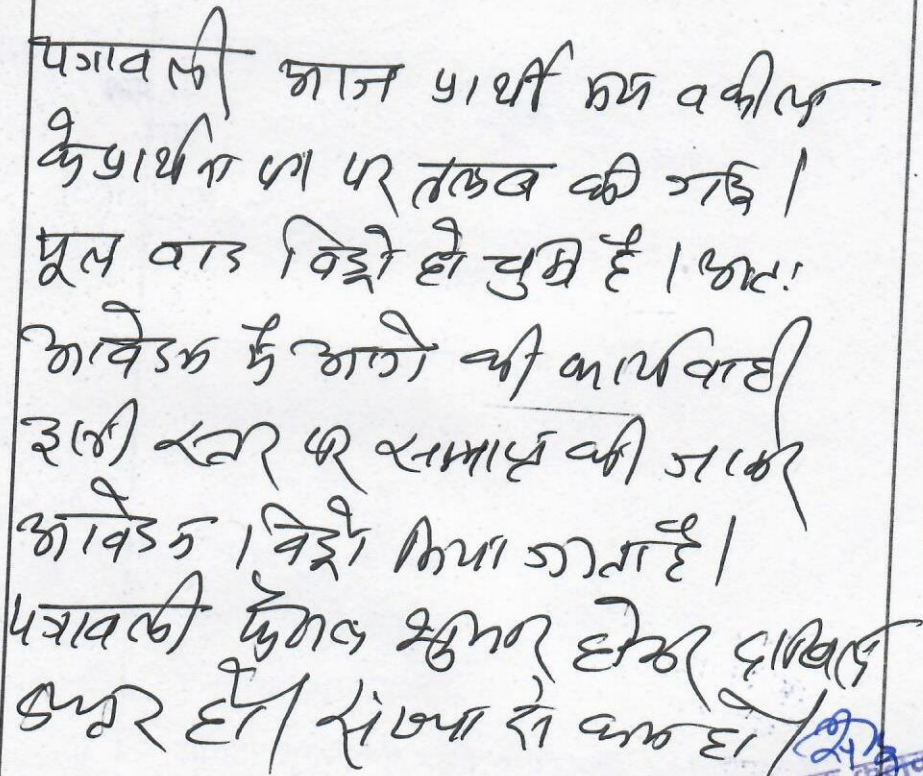 पत्रावली आज प्रार्थी मय वकील
के प्रार्थना पत्र पर तलब की गई।
मूल वाद विड्रो हो चुका है। अतः
आवेदन में आगे की कार्यवाही
इसी स्तर पर समाप्त की जाकर
आवेदन विड्रो किया जाता है।
पत्रावली फैसल शुमार होकर दाखिल
दफ्तर हो। संख्या से कम हो।